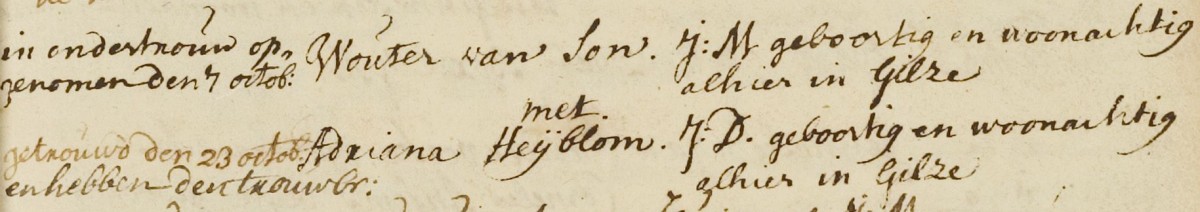 in ondertrouw op„ Wouter van Son. J: M geboortig en woonachtig
genomen den 7 octob: alhier in Gilze
met.
getrouwd den 23 octob: Adriana Heÿblom. J: D. geboortig en woonachtig
en hebben den trouwbr: alhier in Gilze